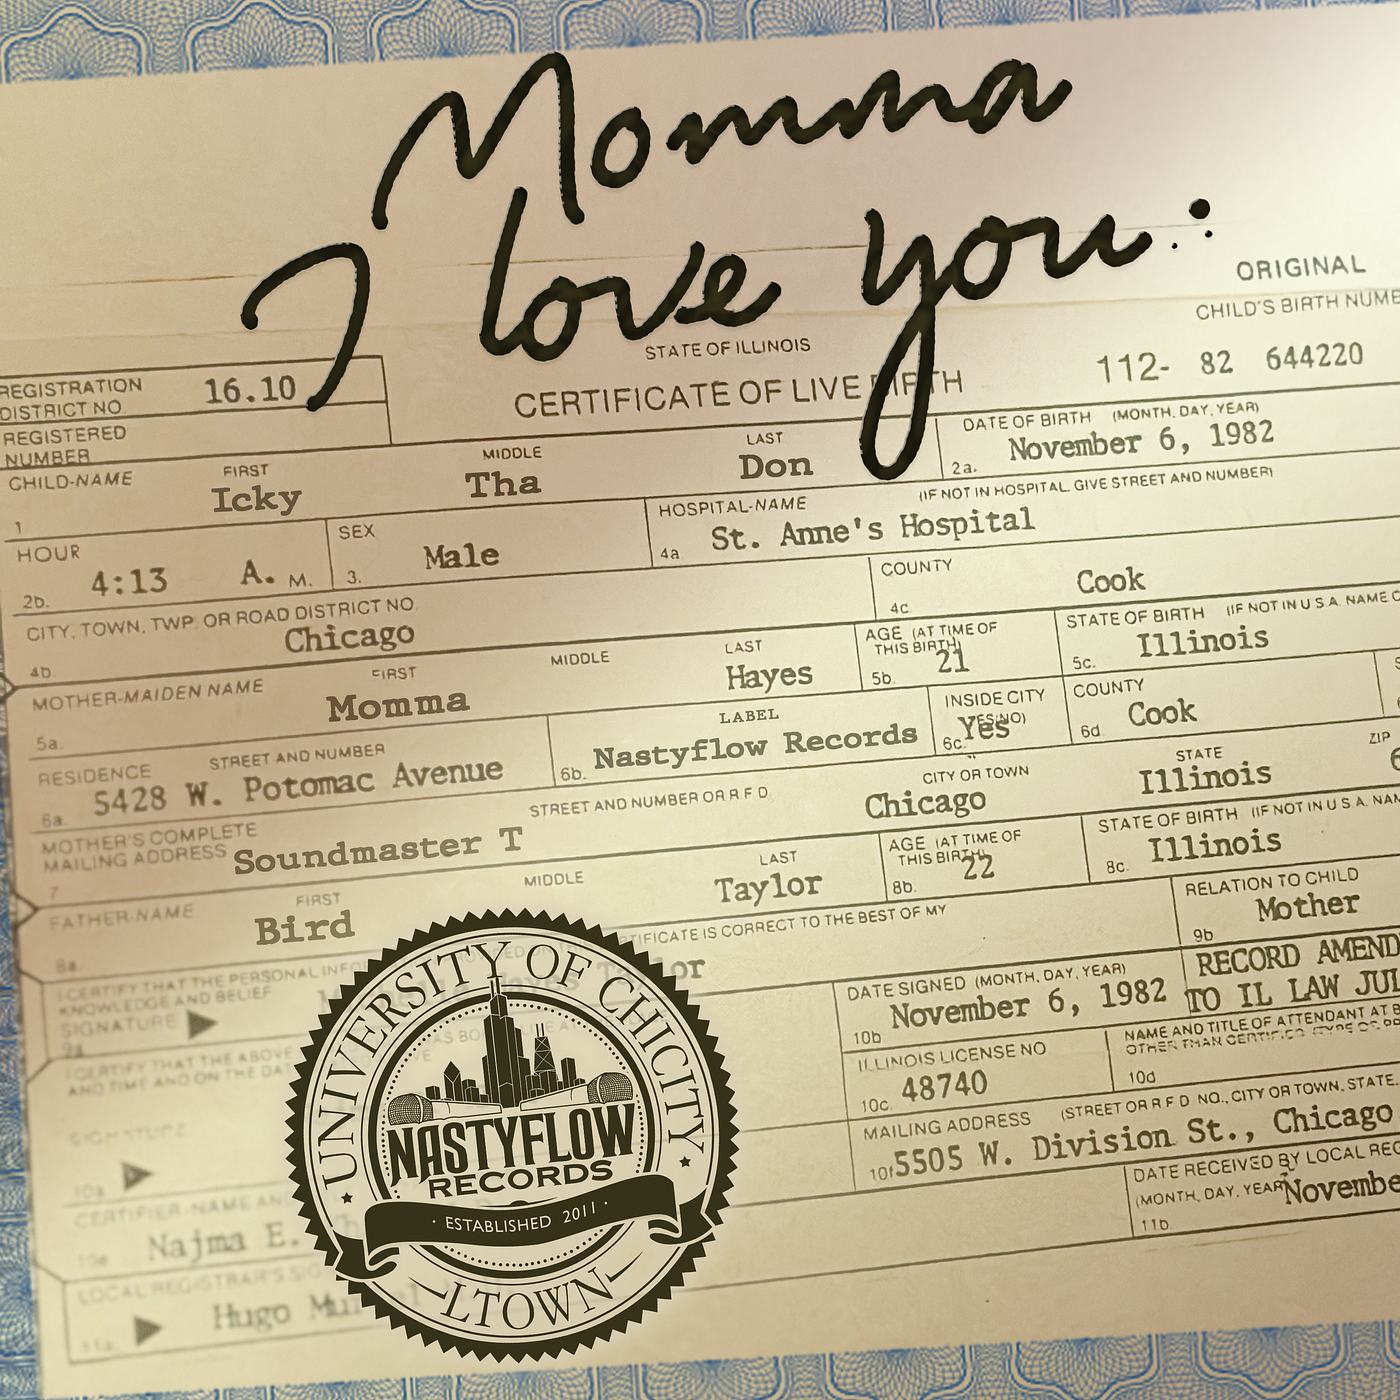 Momma
I love you..
ORIGINAL
STATE OF ILLINOIS
CHILD'S BIRTH NUMBE
REGISTRATION
DISTRICT NO.
16.10
CERTIFICATE OF LIVE BIRTH
112- 82 644220
REGISTERED
NUMBER
CHILD-NAME FIRST MIDDLE LAST
1 Icky Tha Don
DATE OF BIRTH (MONTH, DAY, YEAR)
2a. November 6, 1982
HOUR
2b. 4:13 A. M.
SEX
3. Male
HOSPITAL-NAME (IF NOT IN HOSPITAL, GIVE STREET AND NUMBER)
4a St. Anne's Hospital
CITY, TOWN, TWP. OR ROAD DISTRICT NO.
4b. Chicago
COUNTY
4c. Cook
MOTHER-MAIDEN NAME FIRST MIDDLE LAST
5a. Momma Hayes
AGE (AT TIME OF
THIS BIRTH)
5b. 21
STATE OF BIRTH (IF NOT IN U.S.A. NAME C
5c. Illinois
RESIDENCE STREET AND NUMBER
6a. 5428 W. Potomac Avenue
LABEL
6b. Nastyflow Records
INSIDE CITY
(YES/NO)
6c. Yes
COUNTY
6d. Cook
MOTHER'S COMPLETE
MAILING ADDRESS
STREET AND NUMBER OR R.F.D.
CITY OR TOWN
STATE
ZIP
7 Soundmaster T Chicago Illinois 6
FATHER-NAME FIRST MIDDLE LAST
8a. Bird Taylor
AGE (AT TIME OF
THIS BIRTH)
8b. 22
STATE OF BIRTH (IF NOT IN U.S.A. NAM
8c. Illinois
I CERTIFY THAT THE PERSONAL INFO
TIFICATE IS CORRECT TO THE BEST OF MY
KNOWLEDGE AND BELIEF
SIGNATURE
9a
RELATION TO CHILD
9b Mother
I CERTIFY THAT THE ABOVE
AND TIME AND ON THE DAT
SIGNATURE
10a
DATE SIGNED (MONTH, DAY, YEAR)
10b November 6, 1982
RECORD AMEND
TO IL LAW JUL
ILLINOIS LICENSE NO.
10c. 48740
NAME AND TITLE OF ATTENDANT AT B
OTHER THAN CERTIFIER (TYPE OR PR
10d
CERTIFIER-NAME AN
10e Najma E.
MAILING ADDRESS (STREET OR R.F.D. NO., CITY OR TOWN, STATE,
10f 5505 W. Division St., Chicago
LOCAL REGISTRAR'S SIG
11a. Hugo Mu
DATE RECEIVED BY LOCAL REG
(MONTH, DAY, YEAR)
11b. Novembe
UNIVERSITY OF CHICITY
NASTYFLOW
RECORDS
· ESTABLISHED 2011 ·
LTOWN